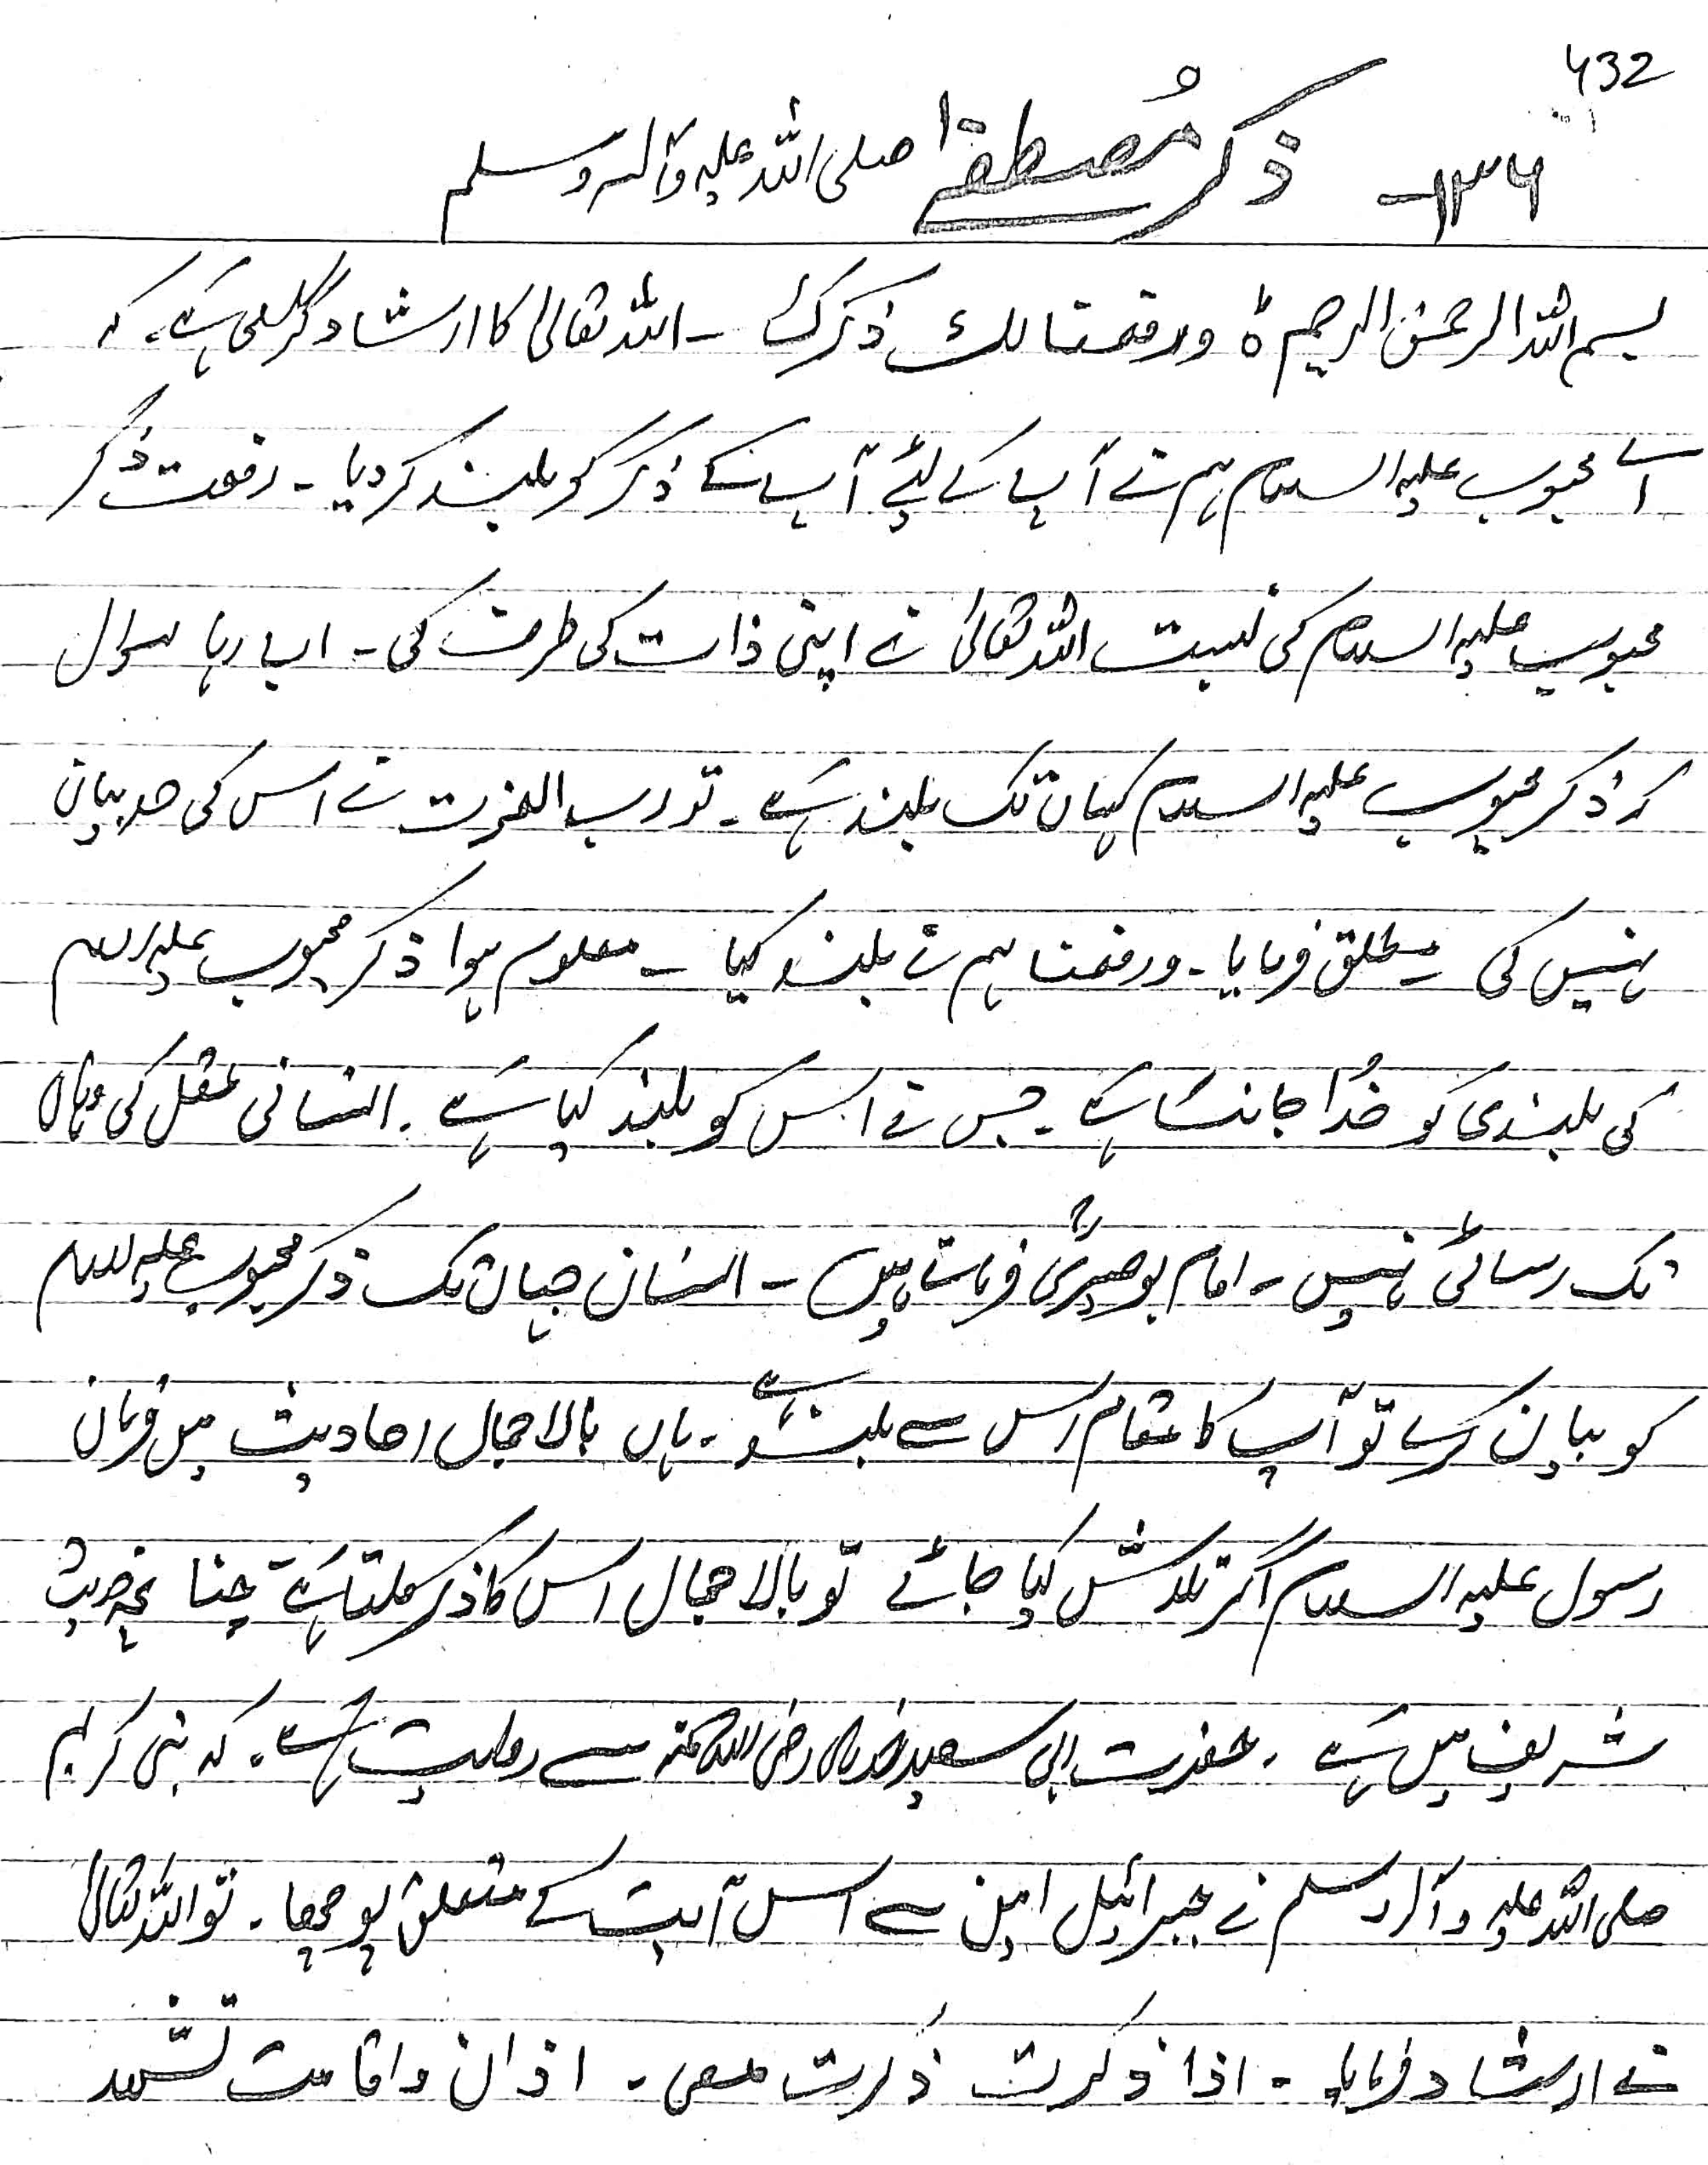 432
۱۳۶- ذکر مُصطفےٰ صلی اللہ علیہ وآلہ وسلم
بسم اللہ الرحمٰن الرحیم ہ ورفعنا لک ذکرک - اللہ تعالیٰ کا ارشاد گرامی ہے۔ کہ
اے محبوب علیہ السلام ہم نے آپ کے لئے آپ کے ذکر کو بلند کر دیا - رفعت ذکر
محبوب علیہ السلام کی نسبت اللہ تعالیٰ نے اپنی ذات کی طرف کی - اب رہا سوال
کہ ذکر محبوب علیہ السلام کہاں تک بلند ہے - تو رب العزت نے اس کی حد بیان
نہیں کی مطلق فرمایا - ورفعنا ہم نے بلند کیا - معلوم ہوا ذکر محبوب علیہ السلام
کی بلندی کو خُدا جانتا ہے - جس نے اس کو بلند کیا ہے - انسانی عقل کی وہاں
تک رسائی نہیں - امام بوصیریؒ فرماتے ہیں - انسان جہاں تک ذکر محبوب علیہ السلام
کو بیان کرے تو آپ کا مقام اس سے بلند ہے - ہاں بالاجمال احادیث میں فرمان
رسول علیہ السلام اگر تلاش کیا جائے تو بالاجمال اس کا ذکر ملتا ہے چنانچہ حدیث
شریف میں ہے - حضرت ابی سعید خدری رضی اللہ عنہ سے روایت ہے - کہ نبی کریم
صلی اللہ علیہ وآلہ وسلم نے جبرائیل امین سے اس آیت کے متعلق پوچھا - تو اللہ تعالیٰ
نے ارشاد فرمایا - اذا ذکرت ذکرت معی - اذان واقامت تشہد